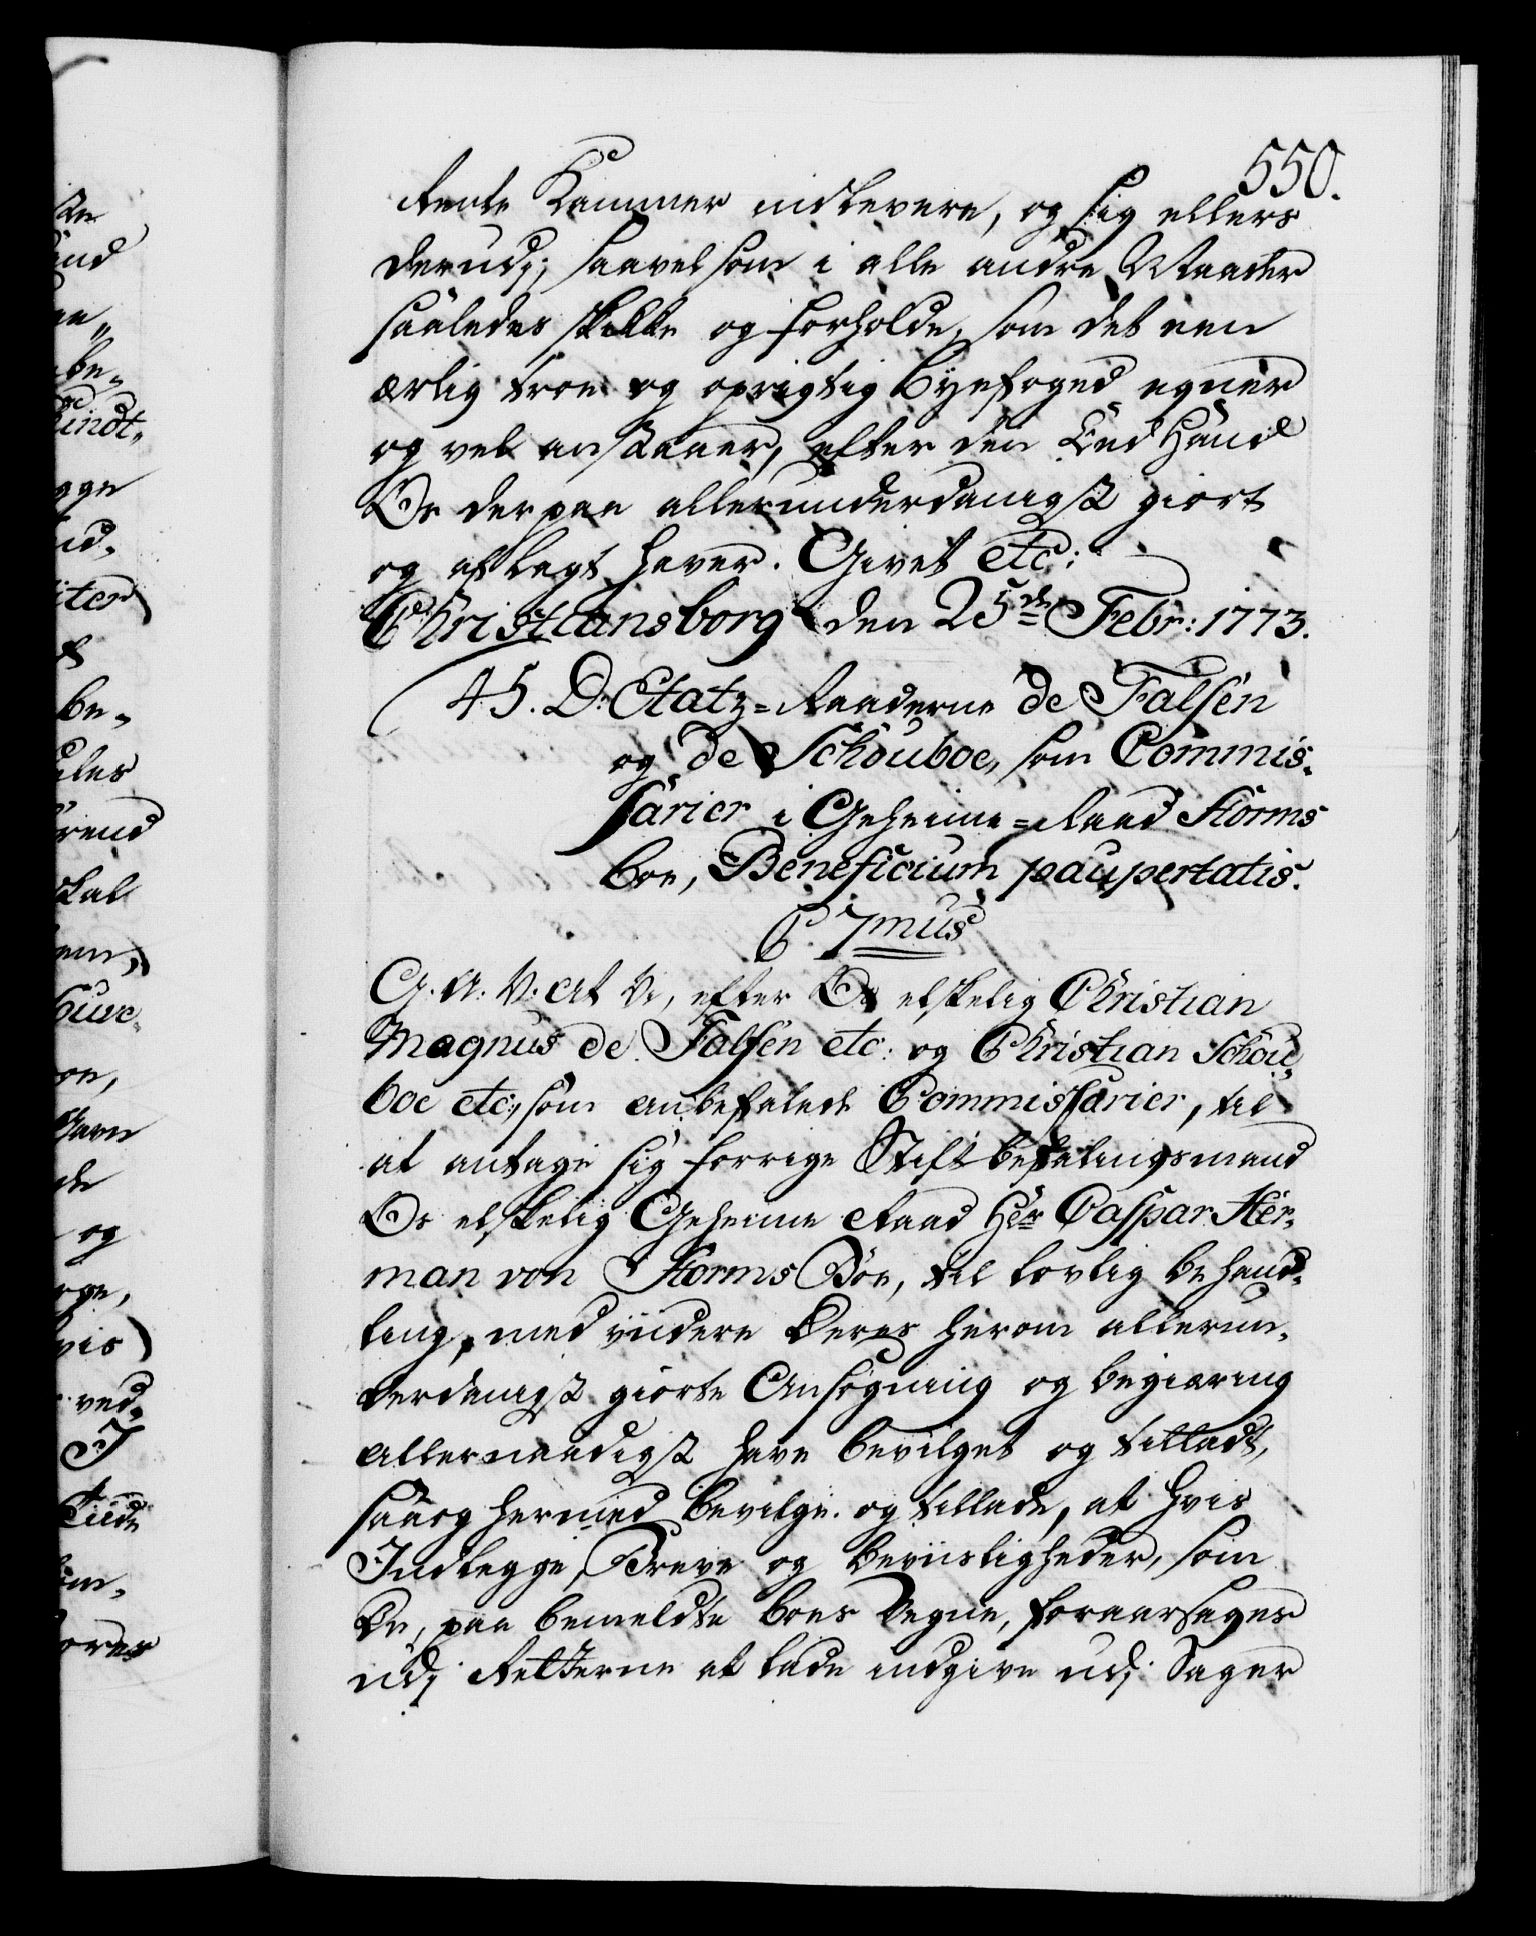 550.
Rente Kammer indlevere, og sig ellers
derudj, saavelsom i alle andre Maader
saaledes skikke og forholde, som det een
ærlig troe og oprigtig Byefoged egner
og vel anstaaer, efter den Eed Hand
Os derpaa allerunderdanigst giort
og aflagt haver. Givet etc:
Christiansborg den 25de Febr: 1773.
45. D: Etatz=Raaderne de Falsen
og de Schouboe, som Commis-
sarier i Geheime=Raad Storms
Boe, Beneficium paupertatis.
C. 7mus
G. A. V: At Vi, efter Os elskelig Christian
Magnus de Falsen etc: og Christian Schou-
boe etc:, som anbefalede Commissarier, til
at antage sig forrige Stiftbefalingsmand
Os elskelig Geheime Raad Hr Caspar Her-
man von Storms Boe, til lovlig behand-
ling, med viidere deres herom allerun-
derdanigst giorte Ansøgning og begiæring
allernaadigst have bevilget og tilladt,
saa og hermed bevilge og tillade, at hvis
Indlegge, Breve og beviisligheder, som
De, paa bemeldte boes Vegne, foraarsages
udj Retterne at lade indgive udj Sager